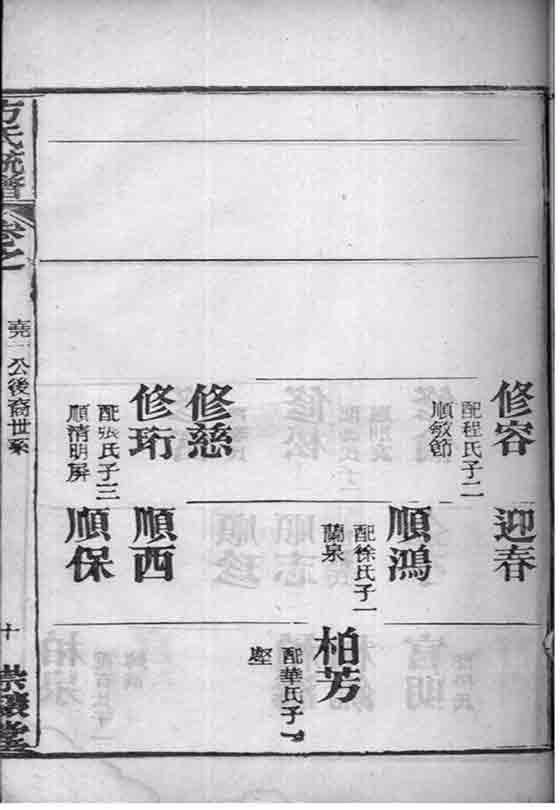 修容
配程氏子二
順敏節
修慈
修珩
配張氏子三
順清明屏
迎春
順鴻
配徐氏子一
蘭泉
順西
順保
柏芳
配華氏子一
壂
方氏統譜
卷之
堯一公後裔世系
十